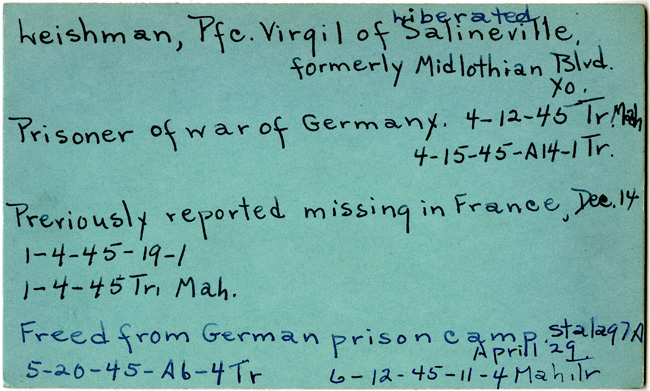 Liberated
Leishman, Pfc. Virgil of Salineville,
formerly Midlothian Blvd.
Yo.
Prisoner of war of Germany. 4-12-45 Tr. Mah
4-15-45-A14-1 Tr.
Previously reported missing in France, Dec. 14
1-4-45-19-1
1-4-45 Tr, Mah.
Freed from German prison camp. Stalag 7A
April 29
5-20-45-A6-4 Tr 6-12-45-11-4 Mah. Tr